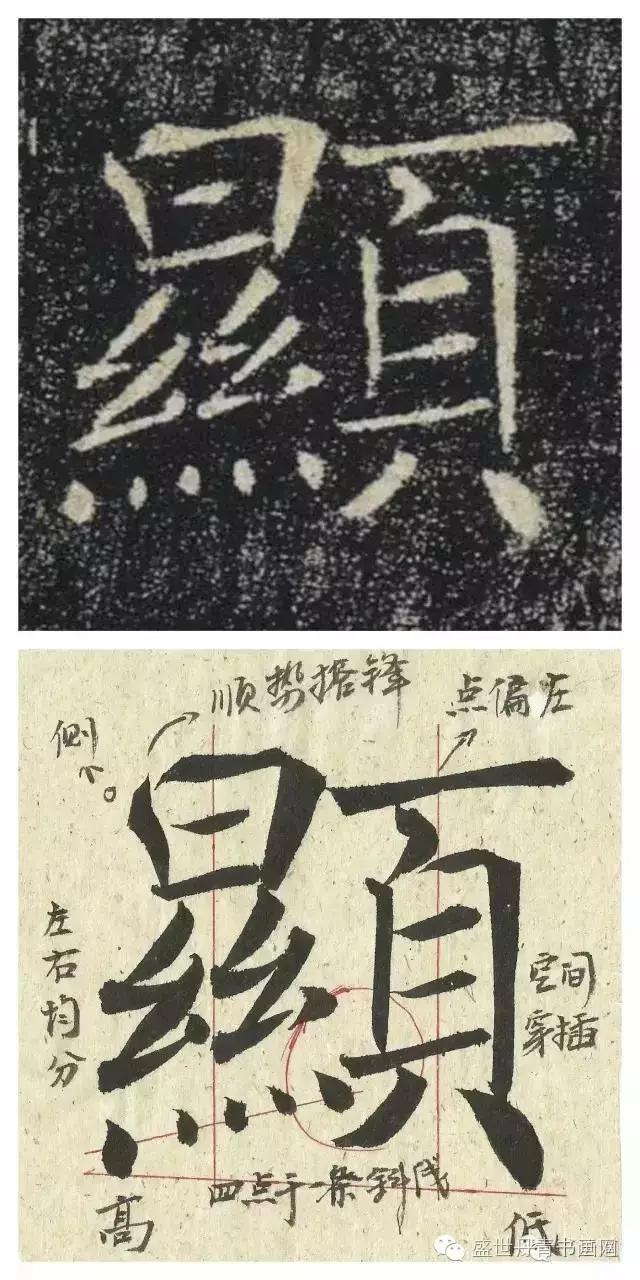 顯
顺势搭锋
点偏左
侧下。
顯
左右均分
空间
穿插
四点于一条斜线
高
低
盛世丹青书画网